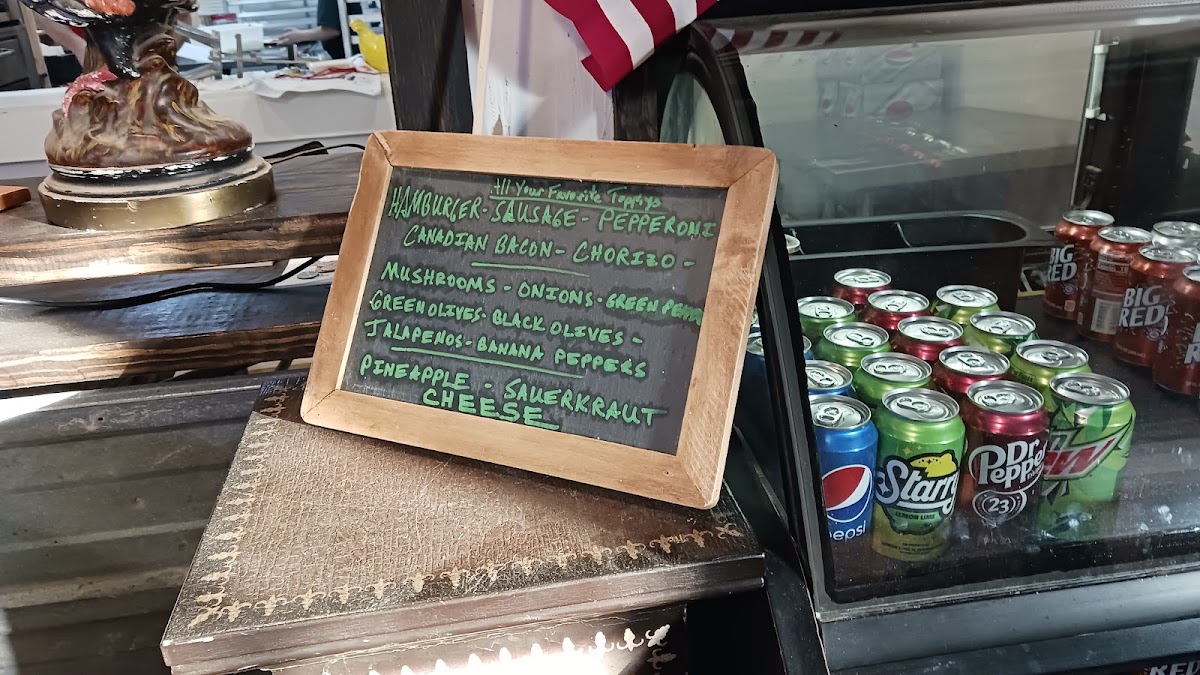 All Your Favorite Toppings
HAMBURGER - SAUSAGE - PEPPERONI
CANADIAN BACON - CHORIZO -
MUSHROOMS - ONIONS - GREEN PEPPER
GREEN OLIVES - BLACK OLIVES -
JALAPENOS - BANANA PEPPERS
PINEAPPLE - SAUERKRAUT
CHEESE
BIG
RED
BIG
RED
pepsi
Starry
LEMON LIME
Dr
Pepper
23